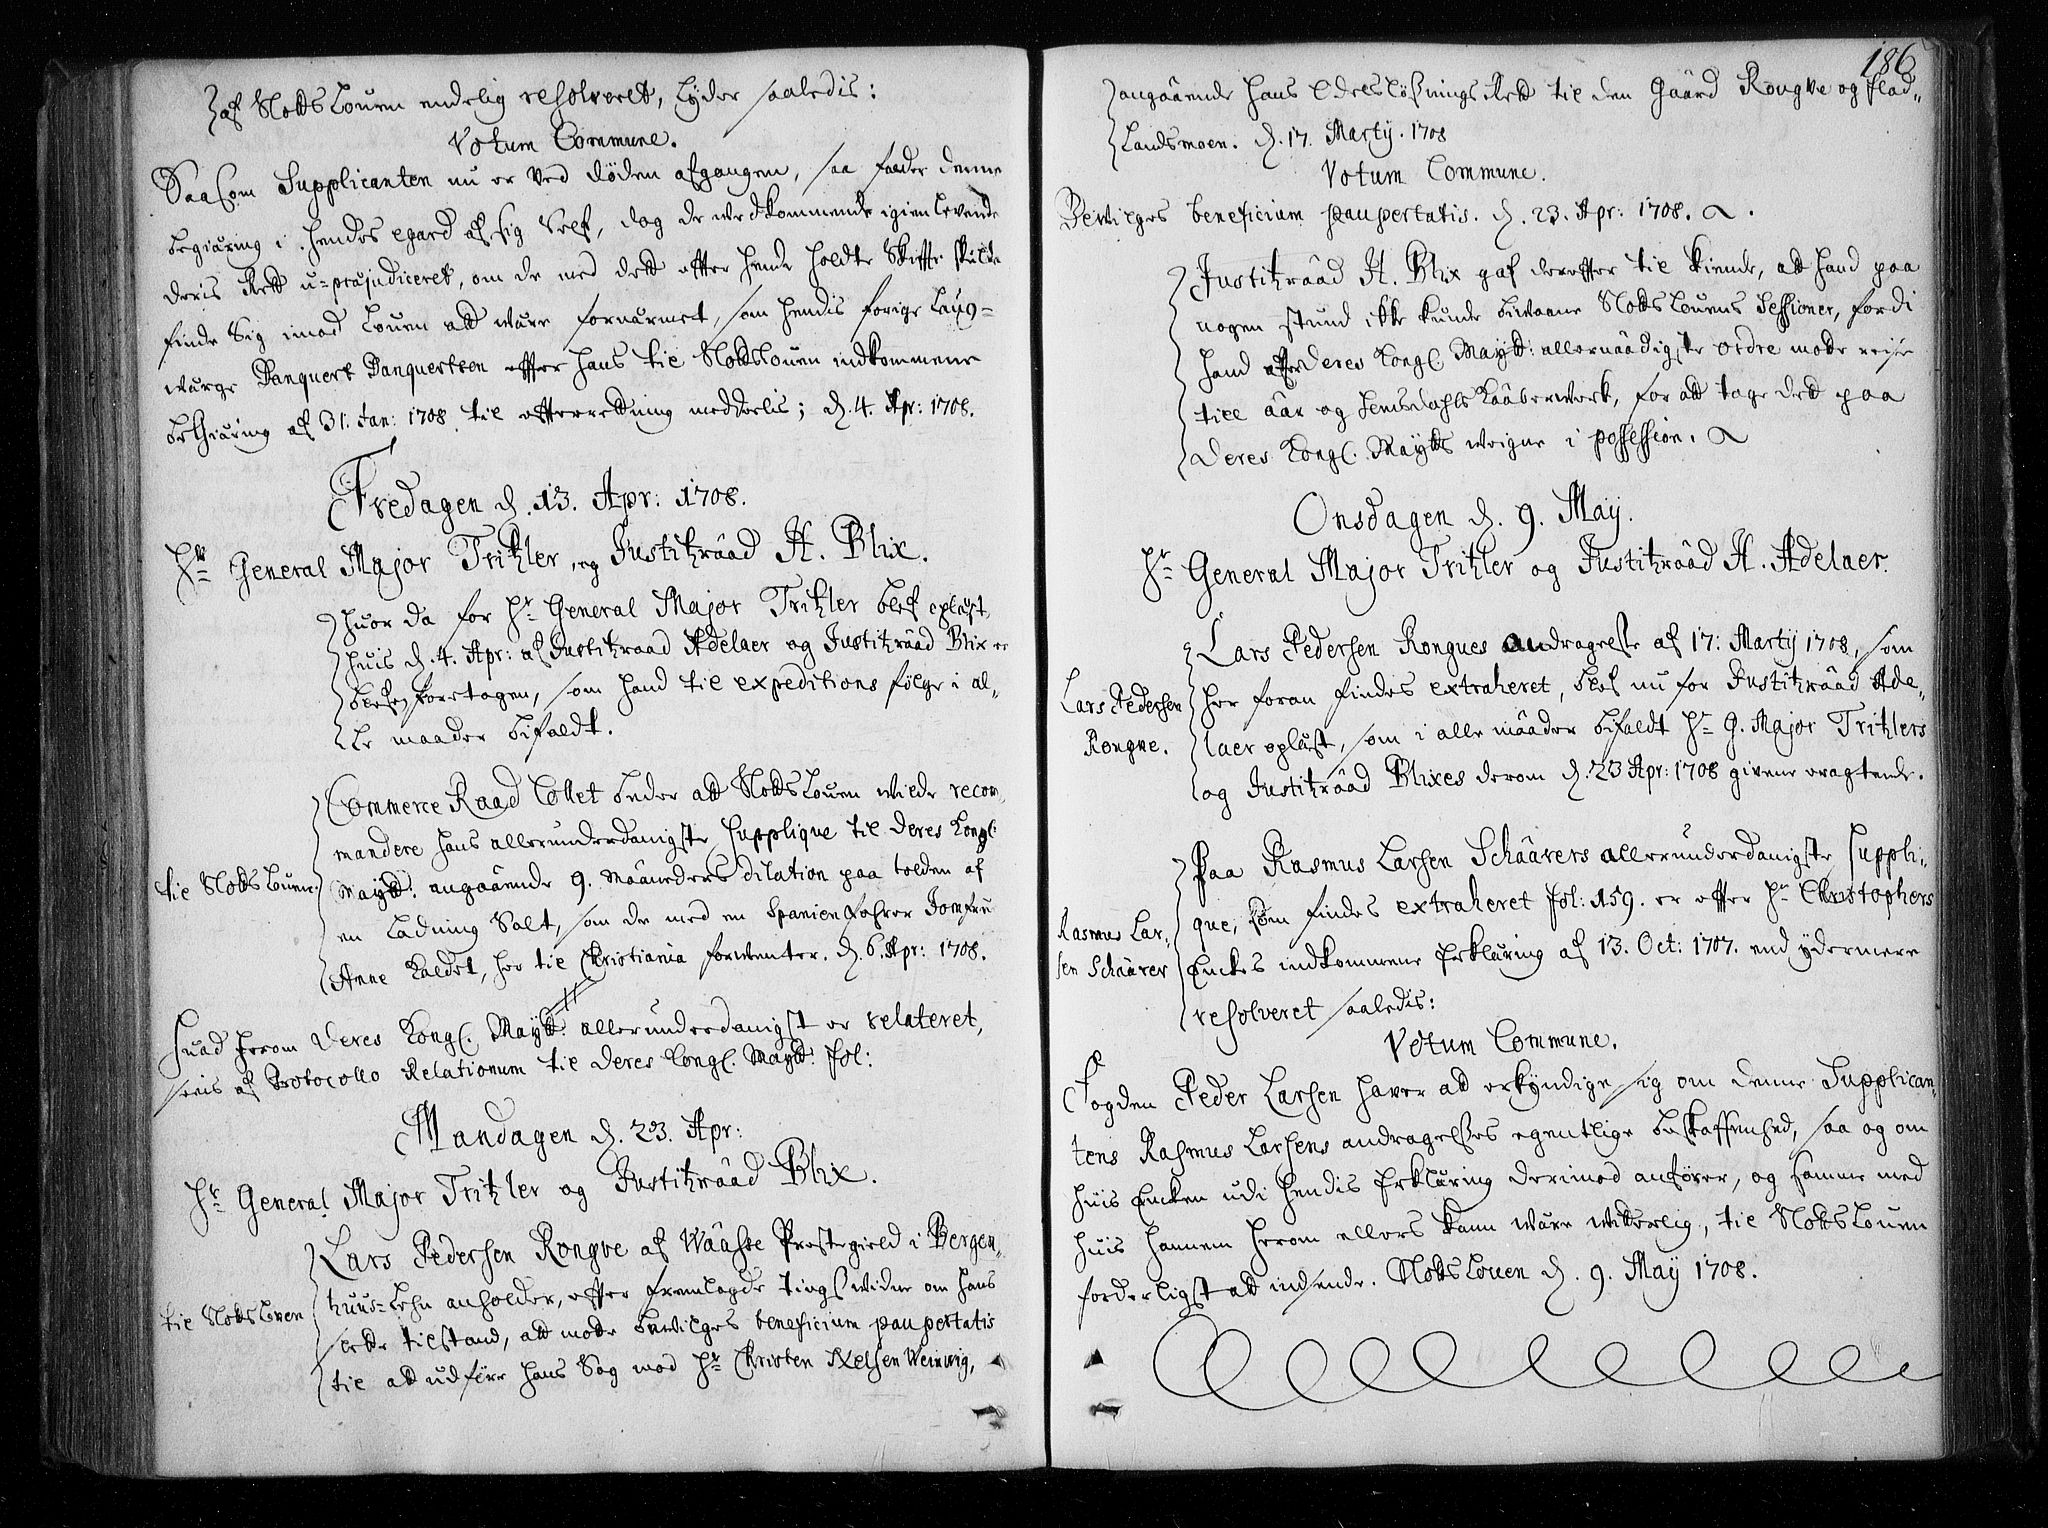 af Slotts Louen endelig resolveret, lyder saaledis:
Votum Commune.
Saasom Supplicanten nu er ved döden afgangen, saa falder denne
begiæring i hendes egard af sig self, dog de vedkommende igien levende
deris Rett u-præjudiceret, om de med dett efter hende holdte Skifte skulde
finde sig imod Louen att være fornærmet, som hendis forige Laug-
værge Danquert Danquertsen efter hans til Slottslouen indkommene
bethiæring af 31. Jan: 1708 til efterretning meddelis; d. 4. Apr: 1708.
Fredagen d. 13. Apr: 1708.
Hr General Major Tritzler, og Justitzraad H. Blix.
huor da for Hr General Major Tritzler blef oplæst,
huis d. 4. Apr: af Justitzraad Adelaer og Justitzraad Blix er
blefen foretagen, som hand til expeditions følge i al-
le maader bifaldt.
til Slotts Louen.
Commerce Raad Collet beder att Slotts Louen wilde recom-
mandere hans allerunderdanigste Supplique til Deres Kongl.
Maytt: angaaende 9. Maaneders dilation paa tolden af
en Ladning Salt, som de med en Spanienfahrer Jomfru
Anne kaldet, her til Christiania forventer. d. 6. Apr: 1708.
Huad herom Deres Kongl. Maytt: allerunderdanigst er relateret,
seeis af Protocollo Relationum til Deres Kongl. Maytt: fol:
Mandagen d. 23. Apr:
Hr General Major Tritzler og Justitzraad Blix.
til Slotts Loven
Lars Pedersen Rongve af Waasse Prestegield i Bergen-
huus-Lehn anholder, efter fremlagde tings widne om hans
slette tilstand, att motte bevilges beneficium paupertatis
til att udføre hans Sag mod Hr Christen Nelsen Weinwig,
186
angaaende hans Odelsløsnings Rett til den Gaard Rongve og flad-
Landsmoen. d. 17. Martij. 1708
Votum Commune.
Bevilges beneficium paupertatis. d. 23. Apr: 1708.
Justitzraad H. Blix gaf derefter til kiende, att hand paa
nogen stund ikke kunde bivaane Slotts Louens Sessioner, fordi
hand efter Deres Kongl. Maytt: allernaadigste ordre motte reise
till Aar og Semsdahls Kaaberverk, for att tage dett paa
Deres Kongl. Maytts veigne i possession.
Onsdagen d. 9. Maÿ.
Hr General Major Tritzler og Justitzraad H. Adelaer.
Lars Pedersen
Rongve.
Lars Pedersen Rongves andragelse af 17: Martij 1708, som
her foran findes extraheret, blef nu for Justitzraad Ade-
laer oplæst, som i alle maader bifaldt Hr G. Major Tritzlers
og Justitzraad Blixes derom d. 23 Apr: 1708 givene eragtende.
Rasmus Lar-
sen Schaarer
Paa Rasmus Larsen Schaarers allerunderdanigste Suppli-
que, som findes extraheret fol: 159. er efter Hr Christophers
Enckes indkommene Erklæring af 13. Oct: 1707. end ydermere
resolveret saaledis:
Votum Commune.
Fogden Peder Larsen haver att erkyndige sig om denne Supplican-
tens Rasmus Larsens andragelses egentlige beskaffenhed, saa og om
huis Encken udi hendis Erklæring derimod anfører, og samme med
huis hannem herom ellers kann være vitterlig, til Slotts Louen
forderligst att indsende. Slotts Louen d. 9. Maÿ 1708.